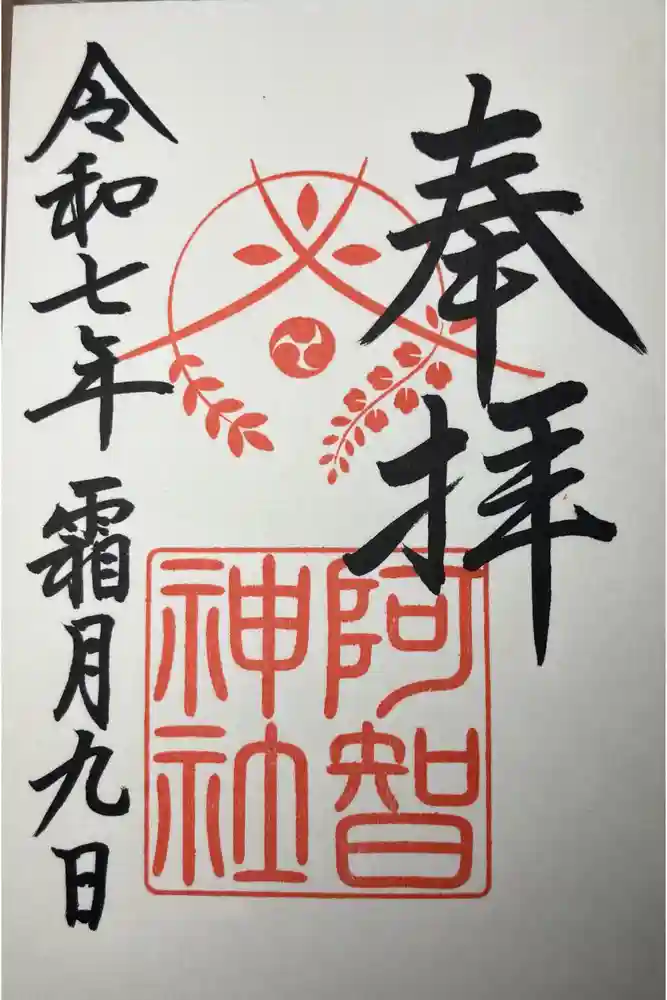 奉拝
阿智
神社
令和七年 霜月九日